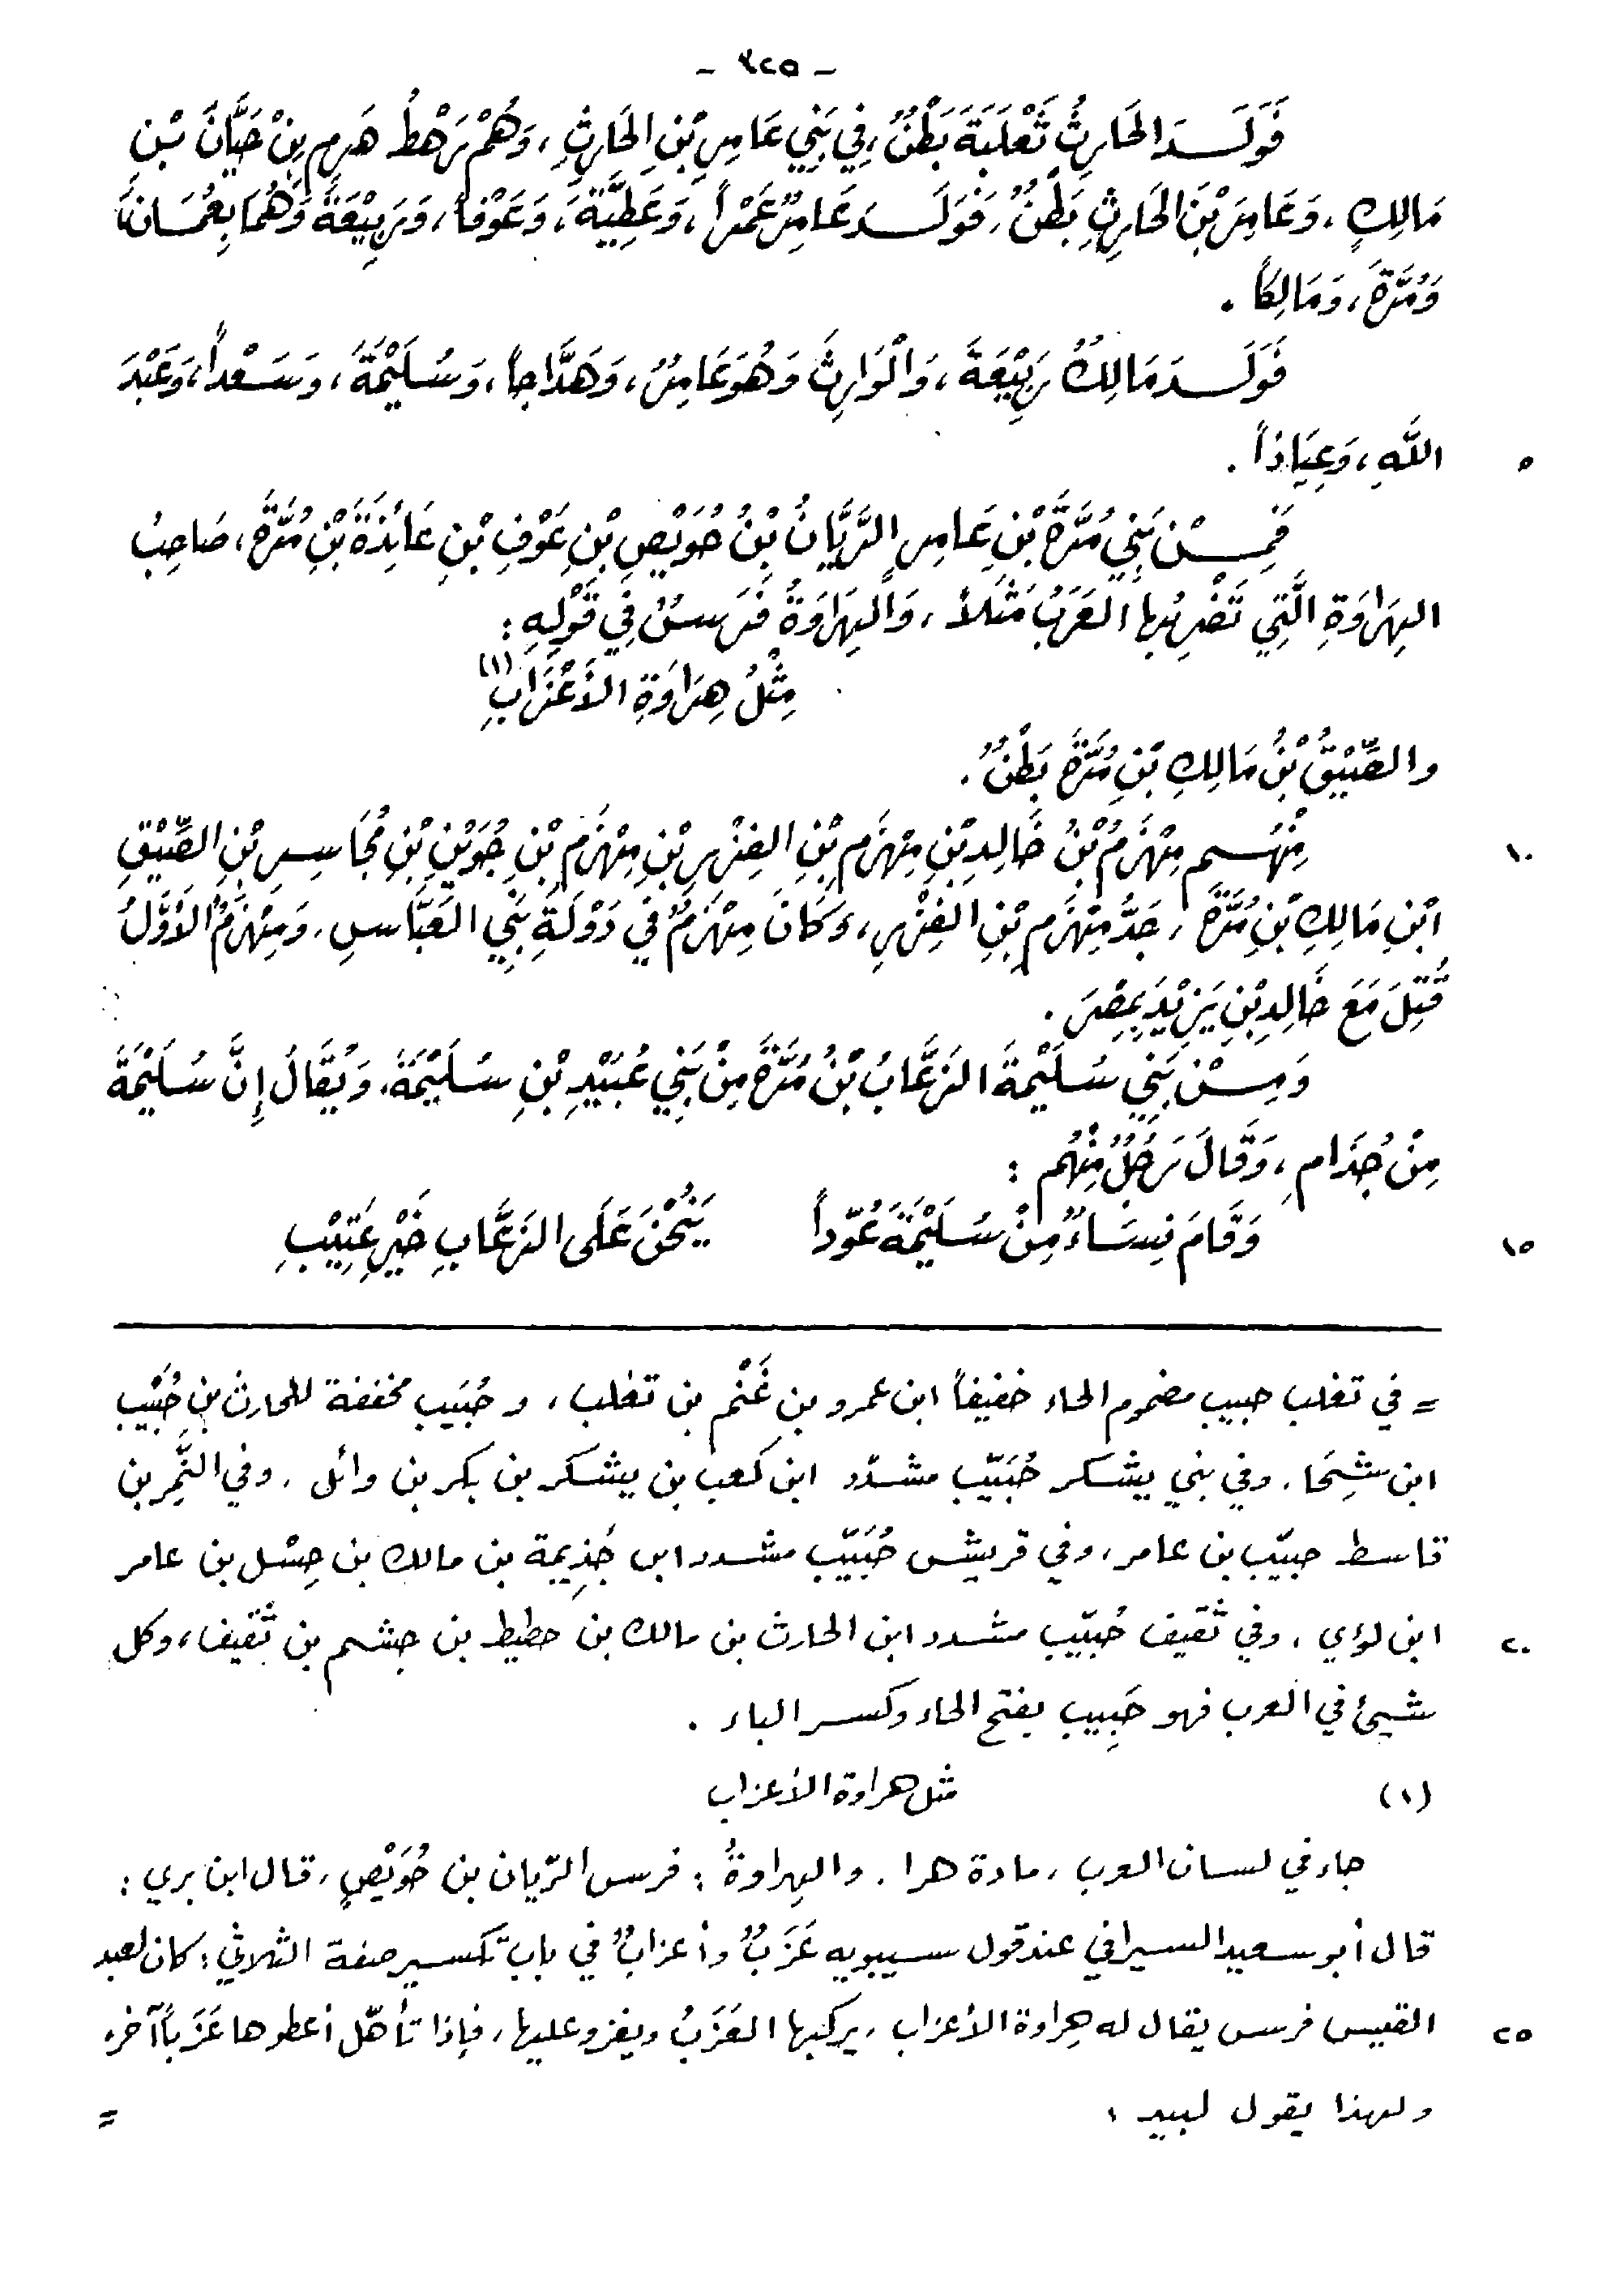 - ٤٢٥ -
فَوَلَدَ الحَارِثُ ثَعْلَبَةَ بَطْنٌ، فِي بَنِي عَامِرِ بْنِ الحَارِثِ، وَهُمْ رَهْطُ هَرِمِ بْنِ حَيَّانَ بْنِ
مَالِكٍ، وَعَامِرَ بْنَ الحَارِثِ بَطْنٌ، فَوَلَدَ عَامِرٌ عَمْراً، وَعَطِيَّةَ، وَعَوْفاً، وَرَبِيْعَةَ وَهُمَا بِعُمَانَ،
وَمُرَّةَ، وَمَالِكاً .
فَوَلَدَ مَالِكٌ رَبِيْعَةَ، وَالْوَارِثَ وَهُوَ عَامِرٌ، وَهَدَّاجاً، وَسُلَيْمَةَ، وَسَعْداً، وَعَبْدَ
٥ اللَّهِ، وَعِيَاذاً .
فَمِنْ بَنِي مُرَّةَ بْنِ عَامِرٍ الرَّيَّانُ بْنُ حُوَيْصِ بْنِ عَوْفِ بْنِ عَائِذَةَ بْنِ مُرَّةَ، صَاحِبُ
الهِرَاوَةِ الَّتِي تَضْرِبُها العَرَبُ مَثَلاً، وَالْهِرَاوَةُ فَرَسٌ فِي قَوْلِهِ :
مِثْلُ هِرَاوَةِ الأَعْزَابِ (١)
والصِّيْقُ بْنُ مَالِكِ بْنِ مُرَّةَ بَطْنٌ .
١٠ مِنْهُم مِهْزَمُ بْنُ خَالِدِ بْنِ مِهْزَمِ بْنِ الفِزْرِ بْنِ مِهْزَمِ بْنِ جُوَيْنِ بْنِ مُجَاسِرِ بْنِ الصِّيْقِ
ابْنِ مَالِكِ بْنِ مُرَّةَ، جَدُّ مِهْزَمِ بْنِ الفِزْرِ، وَكَانَ مِهْزَمٌ فِي دَوْلَةِ بَنِي العَبَّاسِ، وَمِهْزَمٌ الأَوَّلُ
قُتِلَ مَعَ خَالِدِ بْنِ يَزِيْدَ بِمِصْرَ .
وَمِنْ بَنِي سُلَيْمَةَ الزَعَّابُ بْنُ مُرَّةَ مِنْ بَنِي عُبَيْدِ بْنِ سُلَيْمَةَ، وَيُقَالَ إِنَّ سُلَيْمَةَ
مِنْ جُذَامٍ، وَقَالَ رَجُلٌ مِنْهُم :
١٥ وَقَامَ نِسَاءٌ مِنْ سُلَيْمَةَ عُوّداً يَنُحْنَ عَلَى الزَعَّابِ خَيْرِ عَتِيْبِ
= في تغلب حبيب مضموم الحاء خفيفاً ابن عمرو بن غَنْم بن تغلب، وحُبَيب مخففة للحارث بن حُبَيْب
ابن شِحَا، وفي بني يشكر حُبَيّب مشدّد ابن كعب بن يشكر بن بكر بن وائل، وفي النَّمِر بن
قاسط حبيّب بن عامر، وفي قريش حُبَيّب مشدد ابن جَذِيمة بن مالك بن حِسْل بن عامر
٢٠ ابن لؤي، وفي ثَقيف حُبيّب مشدد ابن الحارث بن مالك بن حطيط بن جشم بن ثَقيف، وكل
شيئ في العرب فهو حَبِيب بفتح الحاء وكسر الباء .
(١) مثل هراوة الأعزاب
جاء في لسان العرب، مادة هرا، والهِراوةُ : فرس الرّيان بن حُوَيْصٍ، قال ابن بري :
قال أبو سعيد السيرافي عند قول سيبويه عَزَبٌ وأعزابٌ في باب تكسير صفة الثلاثي : كان لعبد
٢٥ القيس فرس يقال له هِراوة الأعزاب، يركبها العَزَبُ ويغزو عليها، فإذا تأهّل أعطوها عَزَباً آخر،
ولهذا يقول لبيد : =